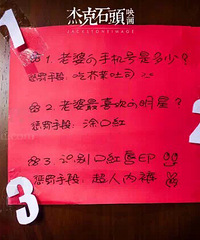 1
杰克石頭
映画
JACKSTONEIMAGE
1. 老婆の手机号是多少?
惩罚手段: 吃芥茉吐司
2
2. 老婆最喜欢の明星?
惩罚手段: 涂口紅
3. 识别口紅唇EP
惩罚手段: 超人内裤
3